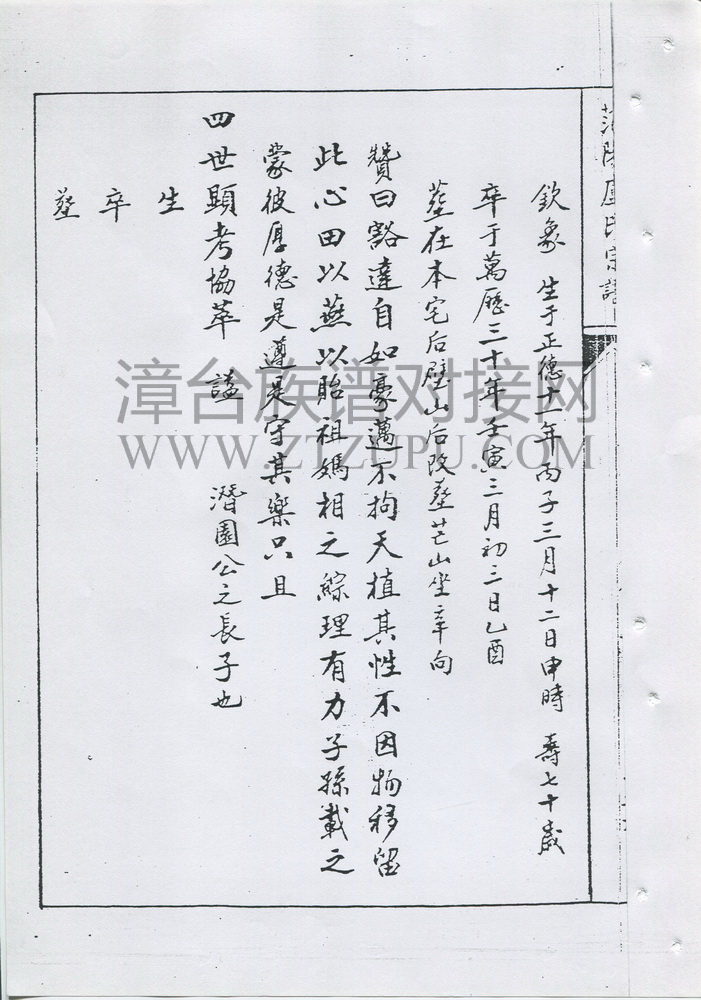 欽象 生于正德十一年丙子三月十二日申時 壽七十歲
卒于萬歷三十年壬寅三月初三日乙酉
塟在本宅后壁山后改塟芒山坐辛向
贊曰豁達自如豪邁不拘天植其性不因物移留
此心田以燕以貽祖媽相之綜理有力子孫載之
蒙彼厚德是遵是守其樂只且
四世顯考協萃 謚 潛園公之長子也
生
卒
塟
漳台族谱对接网
WWW.ZTZUPU.COM